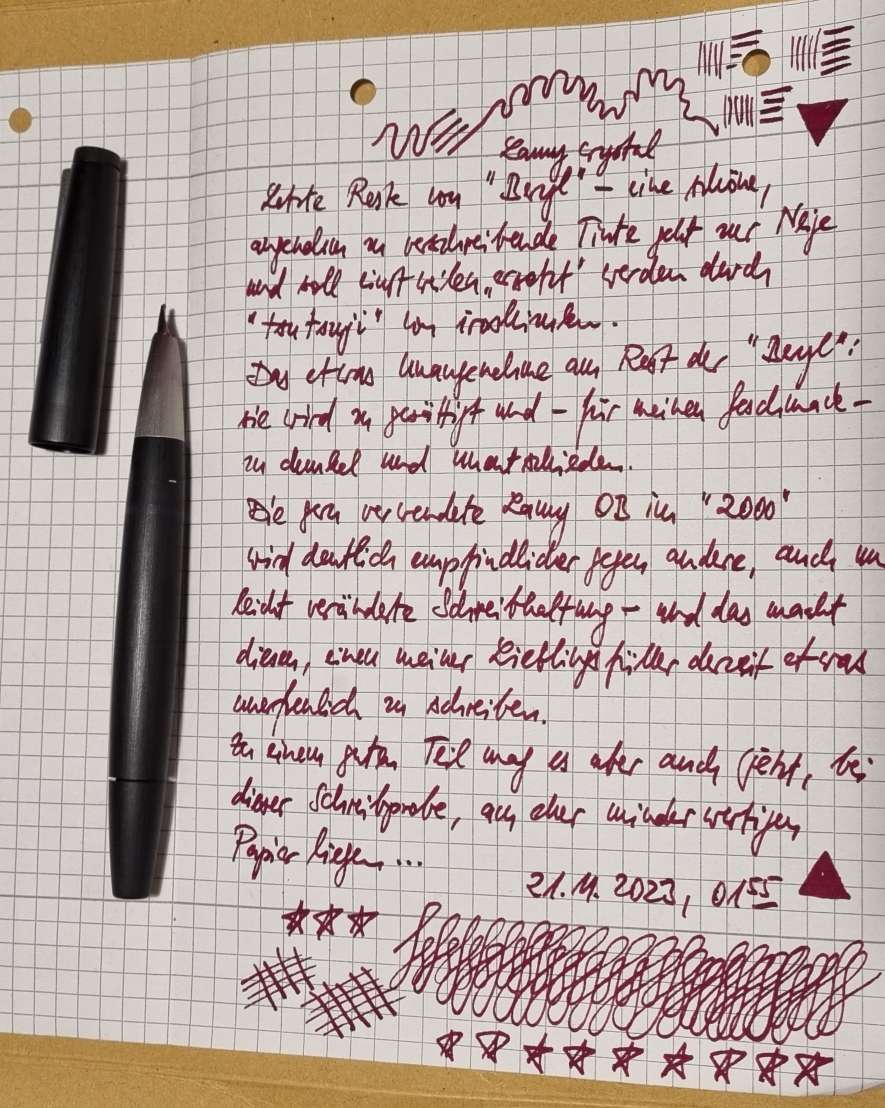 Lamy crystal
Letzte Reste von "Beryl" – eine schöne,
angenehm zu verschreibende Tinte geht zur Neije
und soll einstweilen „ersetzt" werden durch
"tsutsuji" von iroshizuku.
Das etwas Unangenehme am Rest der "Beryl":
sie wird zu gesättigt und – für meinen Geschmack –
zu dunkel und unentschieden.
Die gern verwendete Lamy OB im "2000"
wird deutlich empfindlicher gegen andere, auch nur
leicht veränderte Schreibhaltung – und das macht
diesen, einen meiner Lieblingsfüller derzeit etwas
unerfreulich zu schreiben.
Zu einem guten Teil mag es aber auch jetzt, bei
dieser Schreibprobe, am eher minderwertigen
Papier liegen...
21.11.2023, 01 55